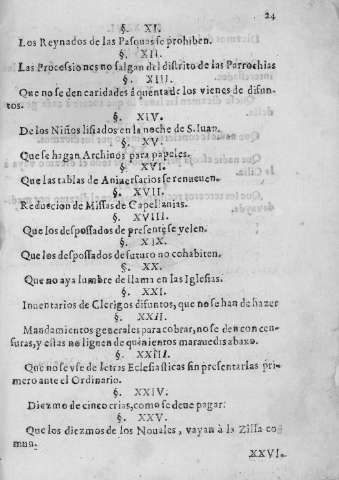 24
§. XI.
Los Reynados de las Pasquas se prohiben.
§. XII.
Las Processiones no salgan del distrito de las Parrochias
§. XIII.
Que no se den caridades á quenta de los vienes de difun-
tos.
§. XIV.
De los Niños lisiados en la noche de S. Iuan.
§. XV.
Que se hagan Archivos para papeles.
§. XVI.
Que las tablas de Aniversarios se renueuen.
§. XVII.
Reduccion de Missas de Capellanias.
§. XVIII.
Que los despossados de presente se velen.
§. XIX.
Que los despossados de futuro no cohabiten.
§. XX.
Que no aya lumbre de llama en las Iglesias.
§. XXI.
Inuentarios de Clerigos difuntos, que no se han de hazer
§. XXII.
Mandamientos generales para cobrar, no se den con cen-
suras, y estas no lignen de quinientos marauedis abaxo.
§. XXIII.
Que no se vse de letras Eclesiasticas sin presentarlas pri-
mero ante el Ordinario.
§. XXIV.
Diezmo de cinco crias, como se deue pagar.
§. XXV.
Que los diezmos de los Nouales, vayan à la Zilla co-
mun.
XXVI.